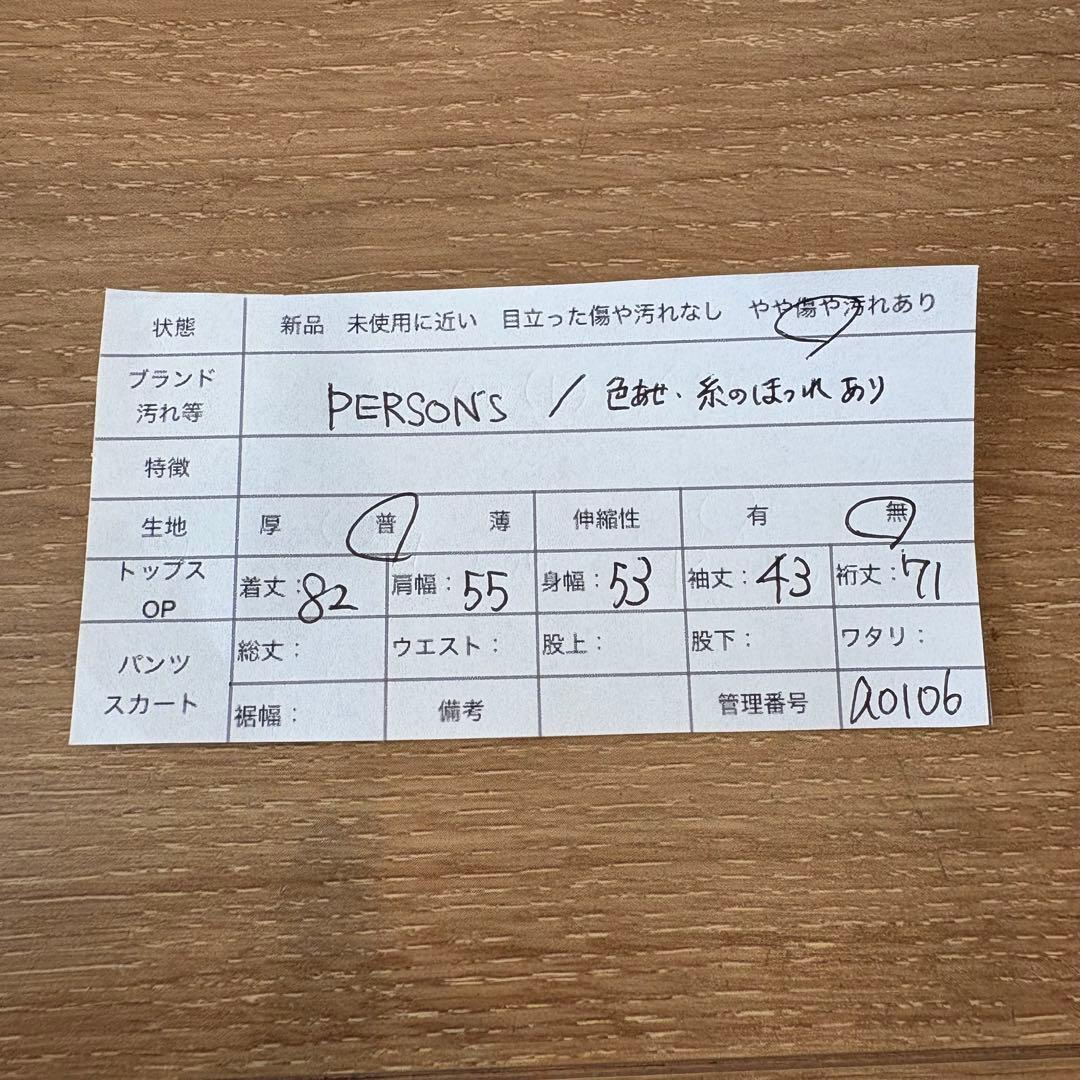 状態 新品 未使用に近い 目立った傷や汚れなし やや傷や汚れあり
ブランド
汚れ等 PERSON'S / 色あせ・糸のほつれあり
特徴
生地 厚 普 薄 伸縮性 有 無
トップス
OP 着丈:82 肩幅:55 身幅:53 袖丈:43 裄丈:71
パンツ
スカート 総丈: ウエスト: 股上: 股下: ワタリ:
裾幅: 備考 管理番号 a0106